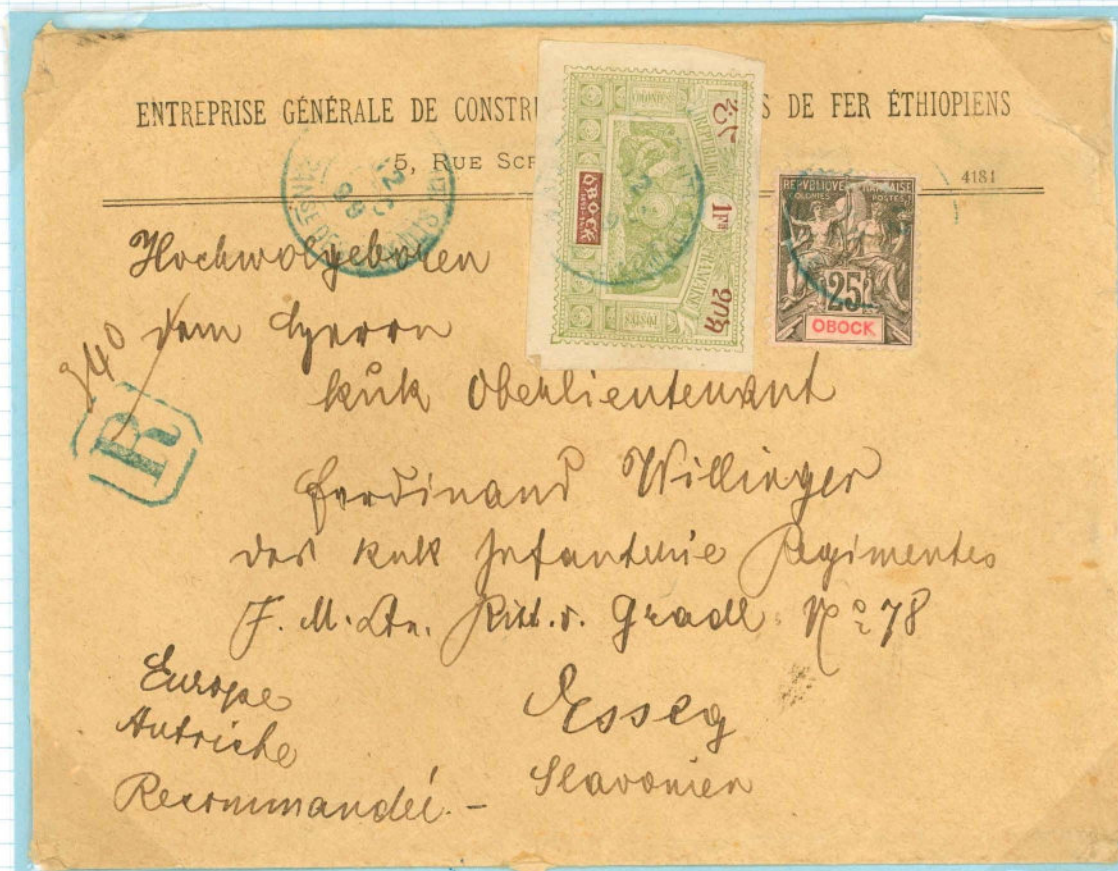 ENTREPRISE GÉNÉRALE DE CONSTR S DE FER ÉTHIOPIENS
5, RUE SCR
4181
RÉPUBLIQUE FRANÇAISE
POSTES
OBOCK
1FR
REPVBLIQVE FRANÇAISE
COLONIES POSTES
25
OBOCK
Hochwolgeboren
dem Herrn
340
R
kuk Oberlieutenant
Ferdinand Willinger
des kuk Infanterie Regimentes
F. M. Ltn. Ritt. v. Gradl. No 78
Europe
Autriche
Esseg
Slavonien
Recommandée. –